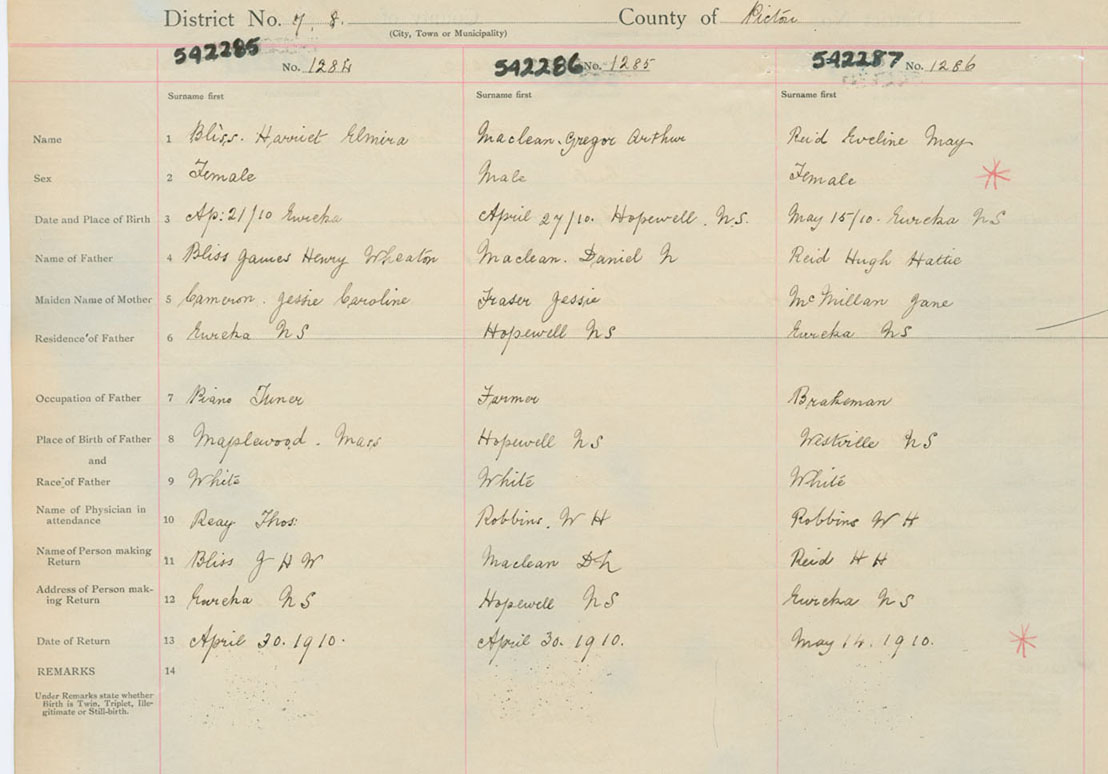 District No. 7, 8. County of Pictou
(City, Town or Municipality)
542285 No. 1284 542286 No. 1285 542287 No. 1286
Surname first Surname first Surname first
Name 1 Bliss. Harriet Elmira Maclean. Gregor Arthur Reid Eveline May
Sex 2 Female Male Female
Date and Place of Birth 3 Ap: 21/10 Eureka April 27/10. Hopewell. N.S. May 15/10. Eureka NS
Name of Father 4 Bliss James Henry Wheaton Maclean. Daniel Reid Hugh Hattie
Maiden Name of Mother 5 Cameron. Jessie Caroline Fraser Jessie McMillan Jane
Residence of Father 6 Eureka NS Hopewell NS Eureka NS
Occupation of Father 7 Piano Tuner Farmer Brakeman
Place of Birth of Father 8 Maplewood. Mass Hopewell NS Westville NS
and
Race of Father 9 White White White
Name of Physician in
attendance 10 Reay Thos: Robbins. W H Robbins W H
Name of Person making
Return 11 Bliss J H W Maclean Reid H H
Address of Person mak-
ing Return 12 Eureka NS Hopewell NS Eureka NS
Date of Return 13 April 30. 1910. April 30. 1910. May 14. 1910.
REMARKS 14
Under Remarks state whether
Birth is Twin, Triplet, Ille-
gitimate or Still-birth.